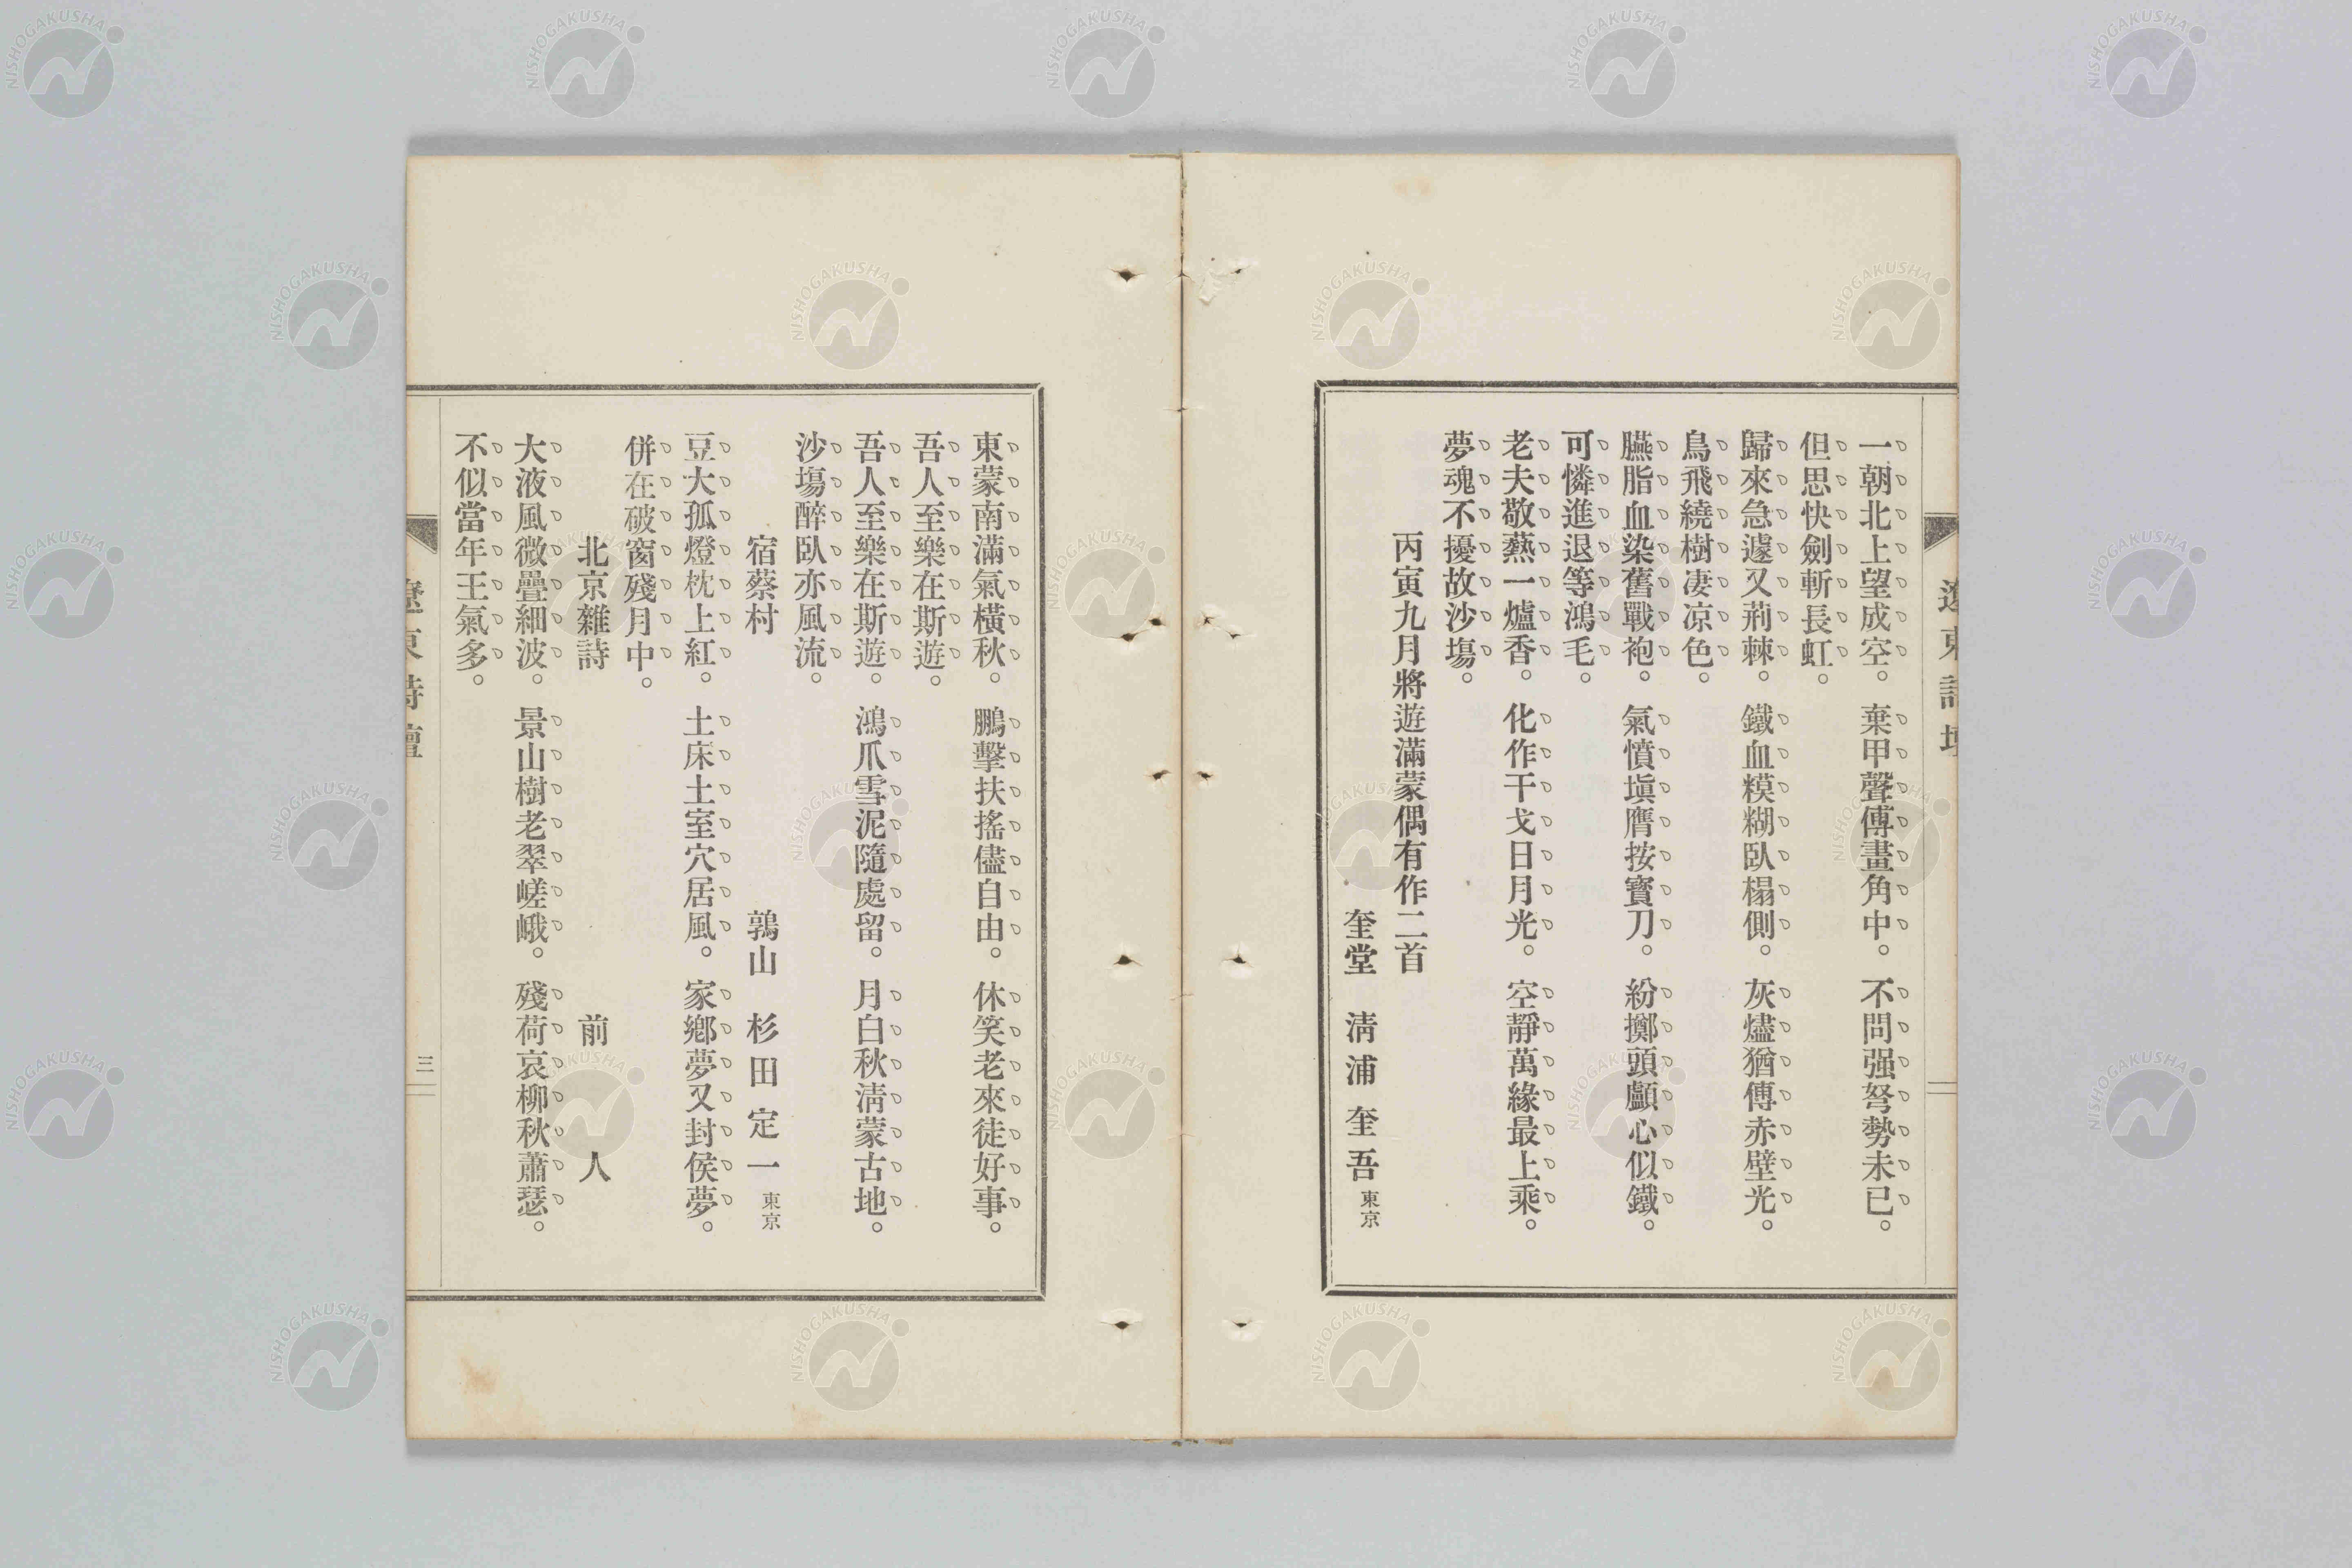 遼東詩壇
一朝北上望成空。棄甲聲傅畫角中。不問强弩勢未已。
但思快劍斬長虹。
歸來急遽又荊棘。鐵血糢糊臥榻側。灰燼猶傅赤壁光。
鳥飛繞樹凄凉色。
臙脂血染舊戰袍。氣憤塡膺按寶刀。紛擲頭顱心似鐵。
可憐進退等鴻毛。
老夫敬爇一爐香。化作干戈日月光。空靜萬緣最上乘。
夢魂不擾故沙塲。
丙寅九月將遊滿蒙偶有作二首
奎堂 淸浦奎吾 東京
東蒙南滿氣橫秋。鵬擊扶搖儘自由。休笑老來徒好事。
吾人至樂在斯遊。
吾人至樂在斯遊。鴻爪雪泥隨處留。月白秋淸蒙古地。
沙塲醉臥亦風流。
宿蔡村 鶉山 杉田定一 東京
豆大孤燈枕上紅。土床土室穴居風。家鄕夢又封侯夢。
併在破窗殘月中。
北京雜詩 前人
大液風微疊細波。景山樹老翠嵯峨。殘荷哀柳秋蕭瑟。
不似當年王氣多。
遼東詩壇
三
NISHOGAKUSHA